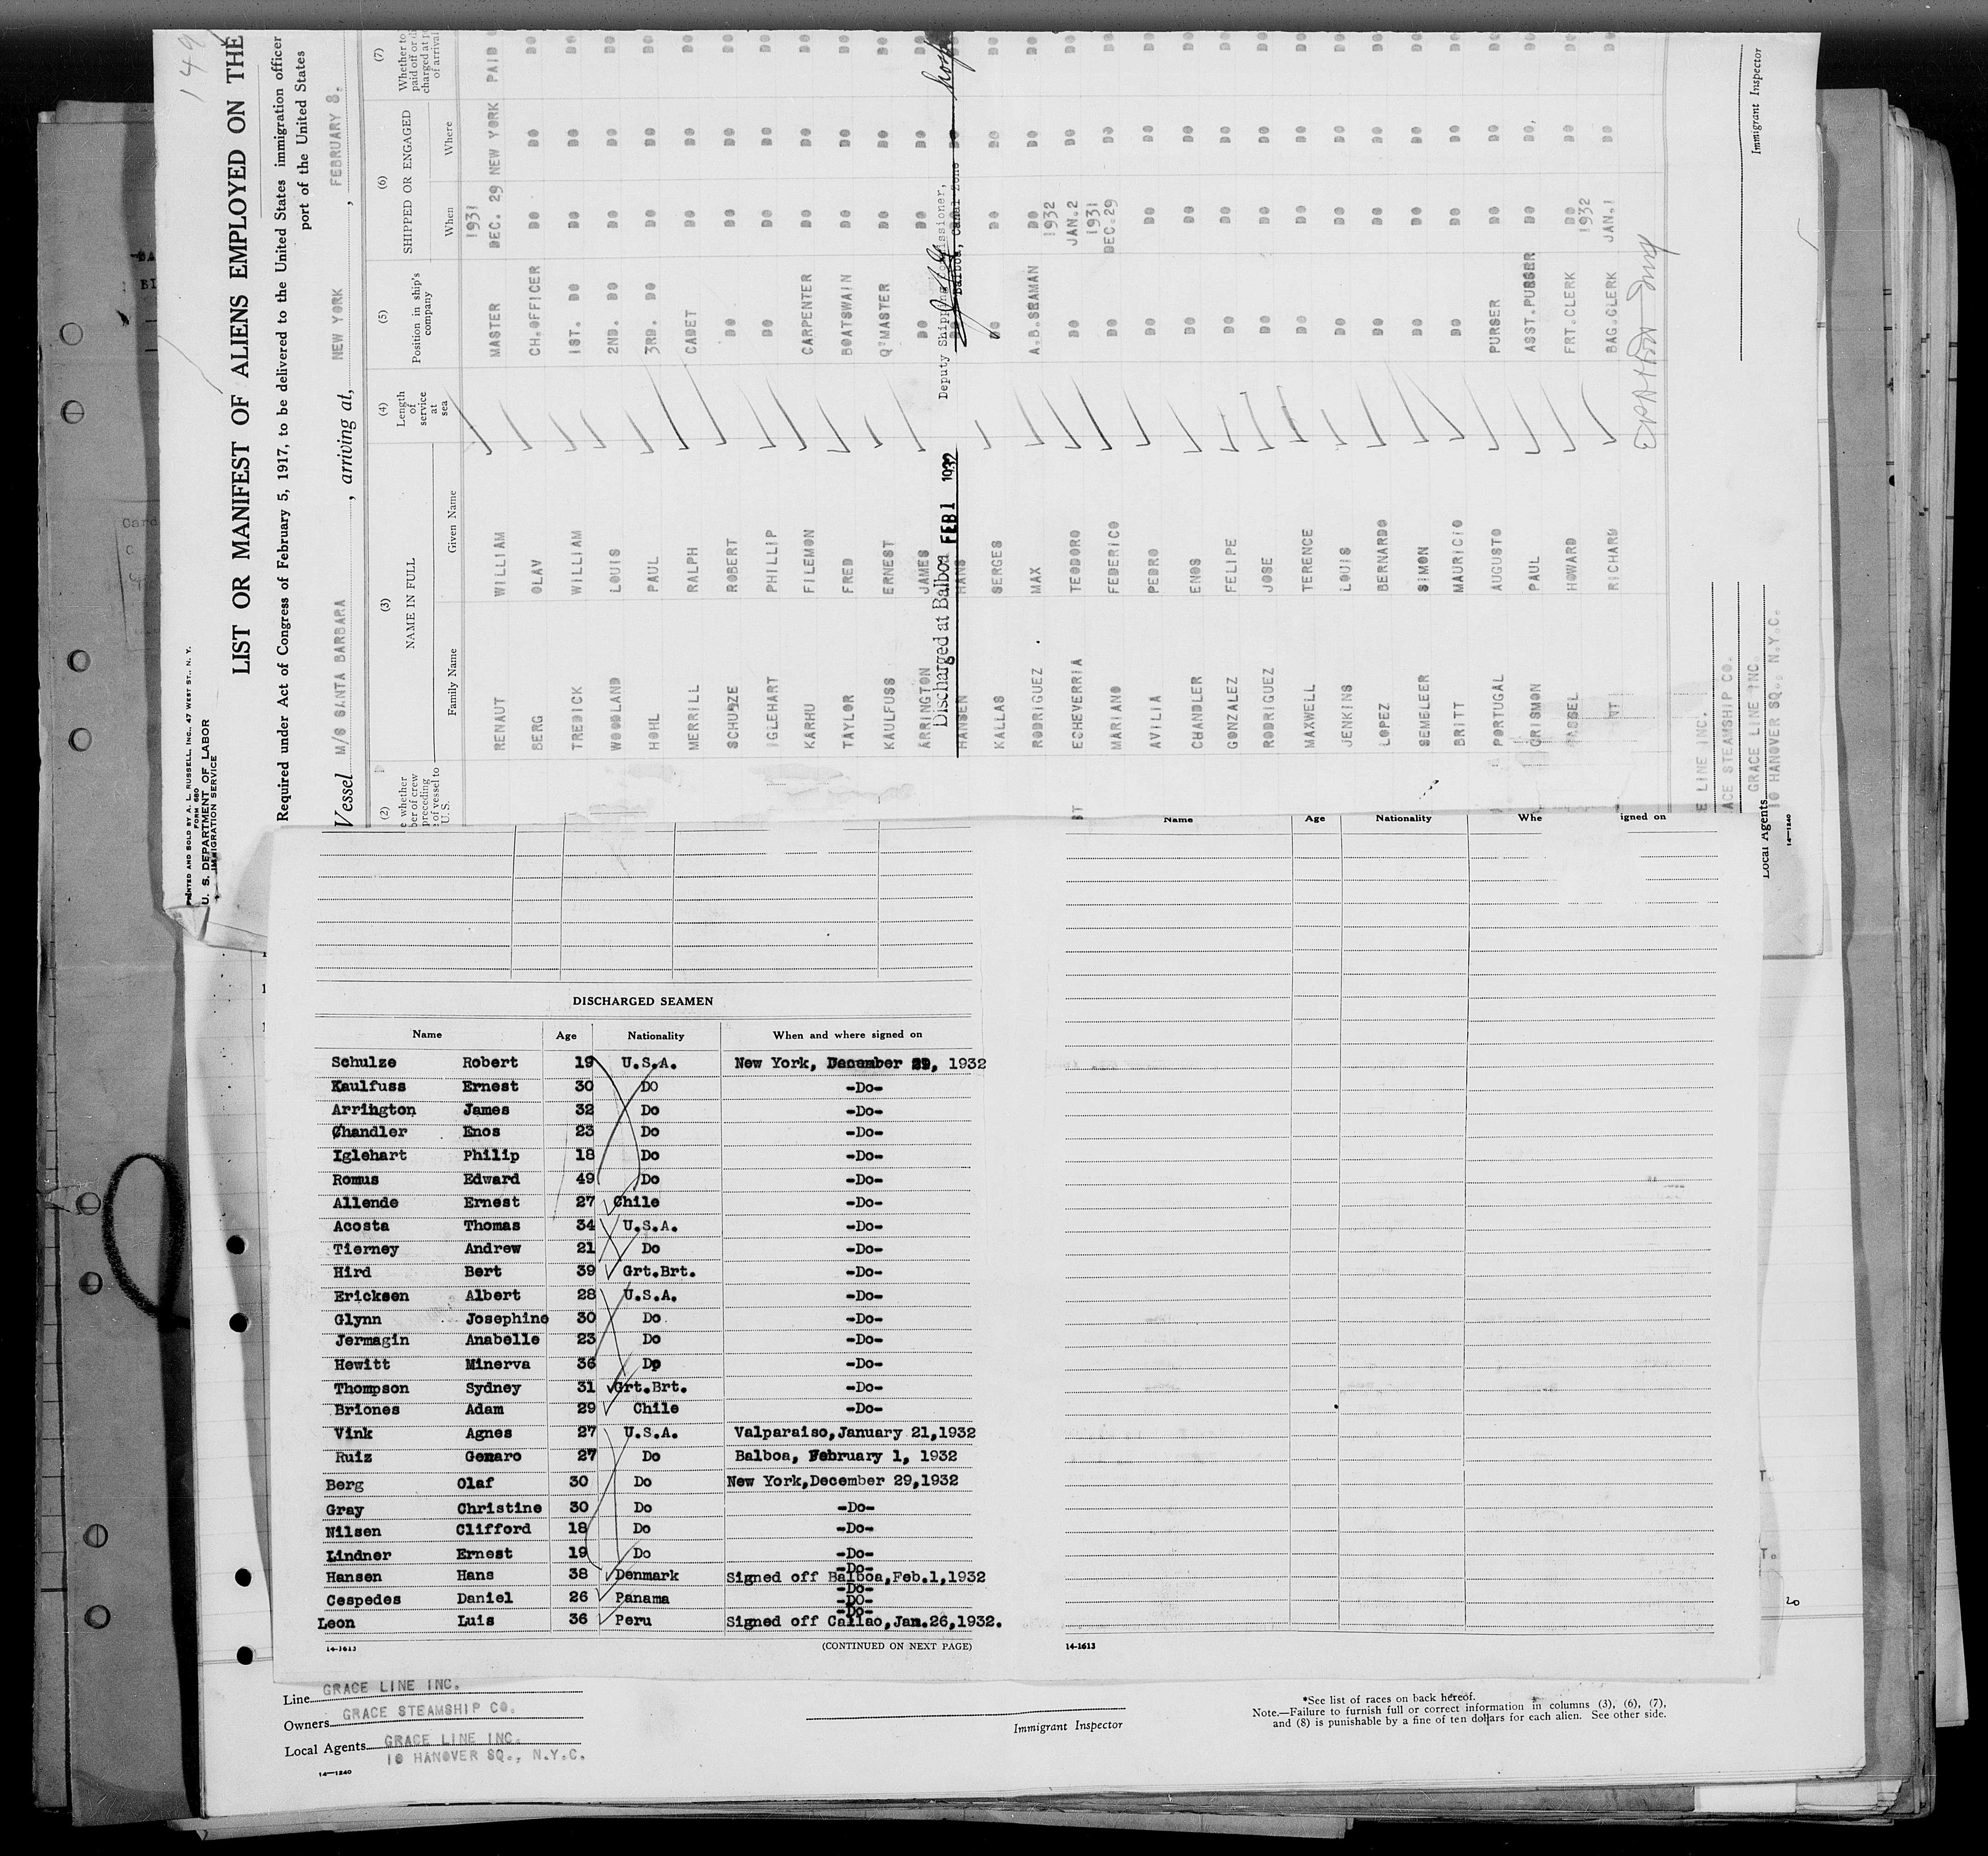 149
PRINTED AND SOLD BY A. L. RUSSELL, INC., 47 WEST ST., N. Y.
FORM 680
U. S. DEPARTMENT OF LABOR
IMMIGRATION SERVICE
LIST OR MANIFEST OF ALIENS EMPLOYED ON THE
Required under Act of Congress of February 5, 1917, to be delivered to the United States immigration officer
port of the United States
Vessel M/S SANTA BARBARA, arriving at, NEW YORK, FEBRUARY 8.
(2) (3) (4) (5) (6) (7)
NAME IN FULL
Family Name Given Name
Length of service at sea
Position in ship's company
SHIPPED OR ENGAGED
When Where
Whether to paid off or charged at of arrival
1931
RENAUT WILLIAM MASTER DEC. 29 NEW YORK PAID
BERG OLAV CH.OFFICER DO DO DO
TREDICK WILLIAM 1ST. DO DO DO DO
WOODLAND LOUIS 2ND. DO DO DO DO
HOHL PAUL 3RD. DO DO DO DO
MERRILL RALPH CADET DO DO DO
SCHULZE ROBERT DO DO DO DO
IGLEHART PHILLIP DO DO DO DO
KARHU FILEMON CARPENTER DO DO DO
TAYLOR FRED BOATSWAIN DO DO DO
KAULFUSS ERNEST Q'MASTER DO DO DO
ARRINGTON JAMES DO DO DO DO
Discharged at Balboa FEB 1 1932 Deputy Shipping Commissioner,
Balboa, Canal Zone
HANSEN HANS DO DO
KALLAS SERGES DO DO DO DO
RODRIGUEZ MAX A.B.SEAMAN DO DO DO
1932
ECHEVERRIA TEODORO DO JAN.2 DO DO
1931
MARIANO FEDERICO DO DEC.29 DO DO
AVILIA PEDRO DO DO DO DO
CHANDLER ENOS DO DO DO DO
GONZALEZ FELIPE DO DO DO DO
RODRIGUEZ JOSE DO DO DO DO
MAXWELL TERENCE DO DO DO DO
JENKINS LOUIS DO DO DO DO
LOPEZ BERNARDO DO DO DO DO
SEMELEER SIMON DO DO DO DO
BRITT MAURICIO DO DO DO DO
PORTUGAL AUGUSTO PURSER DO DO DO
CRISMON PAUL ASST.PURSER DO DO, DO
HOWARD FRT.CLERK DO DO DO
1932
RICHARD BAG.CLERK JAN.1 DO DO
Immigrant Inspector
E LINE INC.
ACE STEAMSHIP CO.
GRACE LINE INC.
Local Agents 10 HANOVER SQ., N.Y.C.
14—1240
DISCHARGED SEAMEN
Name Age Nationality When and where signed on
Schulze Robert 19 U.S.A. New York, December 29, 1932
Kaulfuss Ernest 30 Do -Do-
Arrington James 32 Do -Do-
Chandler Enos 23 Do -Do-
Iglehart Philip 18 Do -Do-
Romus Edward 49 Do -Do-
Allende Ernest 27 Chile -Do-
Acosta Thomas 34 U.S.A. -Do-
Tierney Andrew 21 Do -Do-
Hird Bert 39 Grt.Brt. -Do-
Ericksen Albert 28 U.S.A. -Do-
Glynn Josephine 30 Do -Do-
Jermagin Anabelle 23 Do -Do-
Hewitt Minerva 36 Do -Do-
Thompson Sydney 31 Grt.Brt. -Do-
Briones Adam 29 Chile -Do-
Vink Agnes 27 U.S.A. Valparaiso,January 21,1932
Ruiz Genaro 27 Do Balboa, February 1, 1932
Berg Olaf 30 Do New York,December 29,1932
Gray Christine 30 Do -Do-
Nilsen Clifford 18 Do -Do-
Lindner Ernest 19 Do -Do-
-Do-
Hansen Hans 38 Denmark Signed off Balboa,Feb.1,1932
-Do-
Cespedes Daniel 26 Panama -DO-
-Do-
Leon Luis 36 Peru Signed off Callao,Jan.26,1932.
14-1613
(CONTINUED ON NEXT PAGE)
Name Age Nationality Whe igned on
14-1613
Line GRACE LINE INC.
Owners GRACE STEAMSHIP CO.
Local Agents GRACE LINE INC.
10 HANOVER SQ., N.Y.C.
14—1240
Immigrant Inspector
*See list of races on back hereof.
Note.—Failure to furnish full or correct information in columns (3), (6), (7),
and (8) is punishable by a fine of ten dollars for each alien. See other side.
20